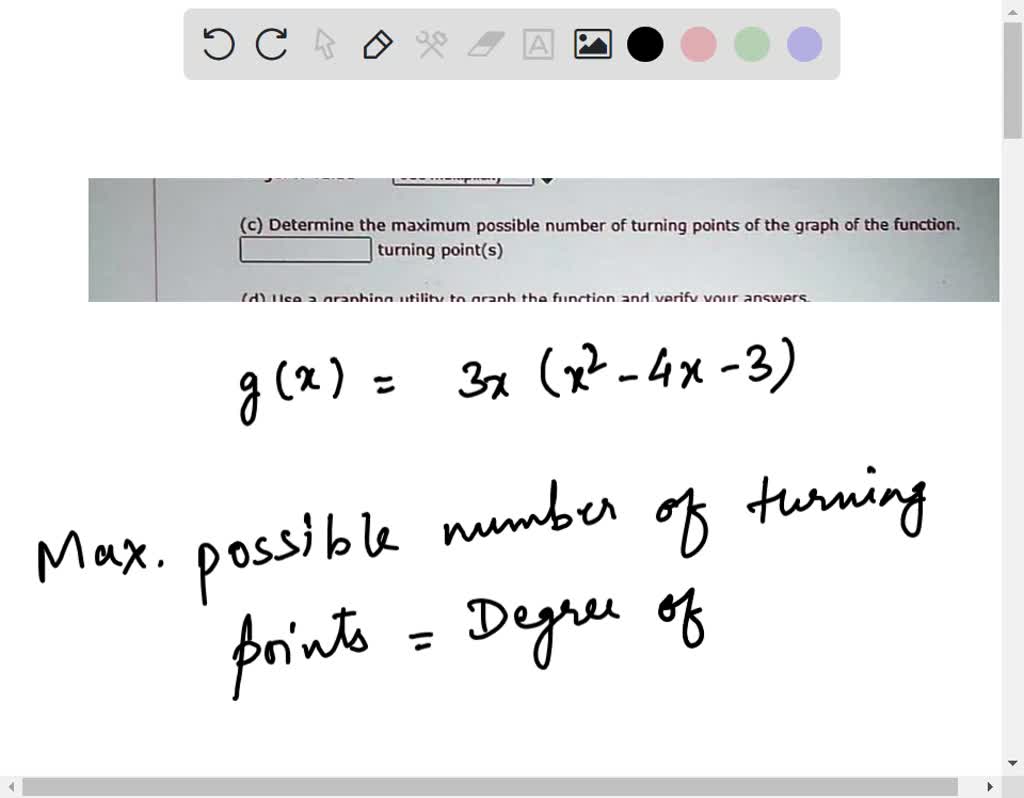 (c) Determine the maximum possible number of turning points of the graph of the function.
turning point(s)
(d) Use a graphing utility to graph the function and verify your answers.
g(x) = 3x (x² - 4x - 3)
Max. possible number of turning
points = Degree of